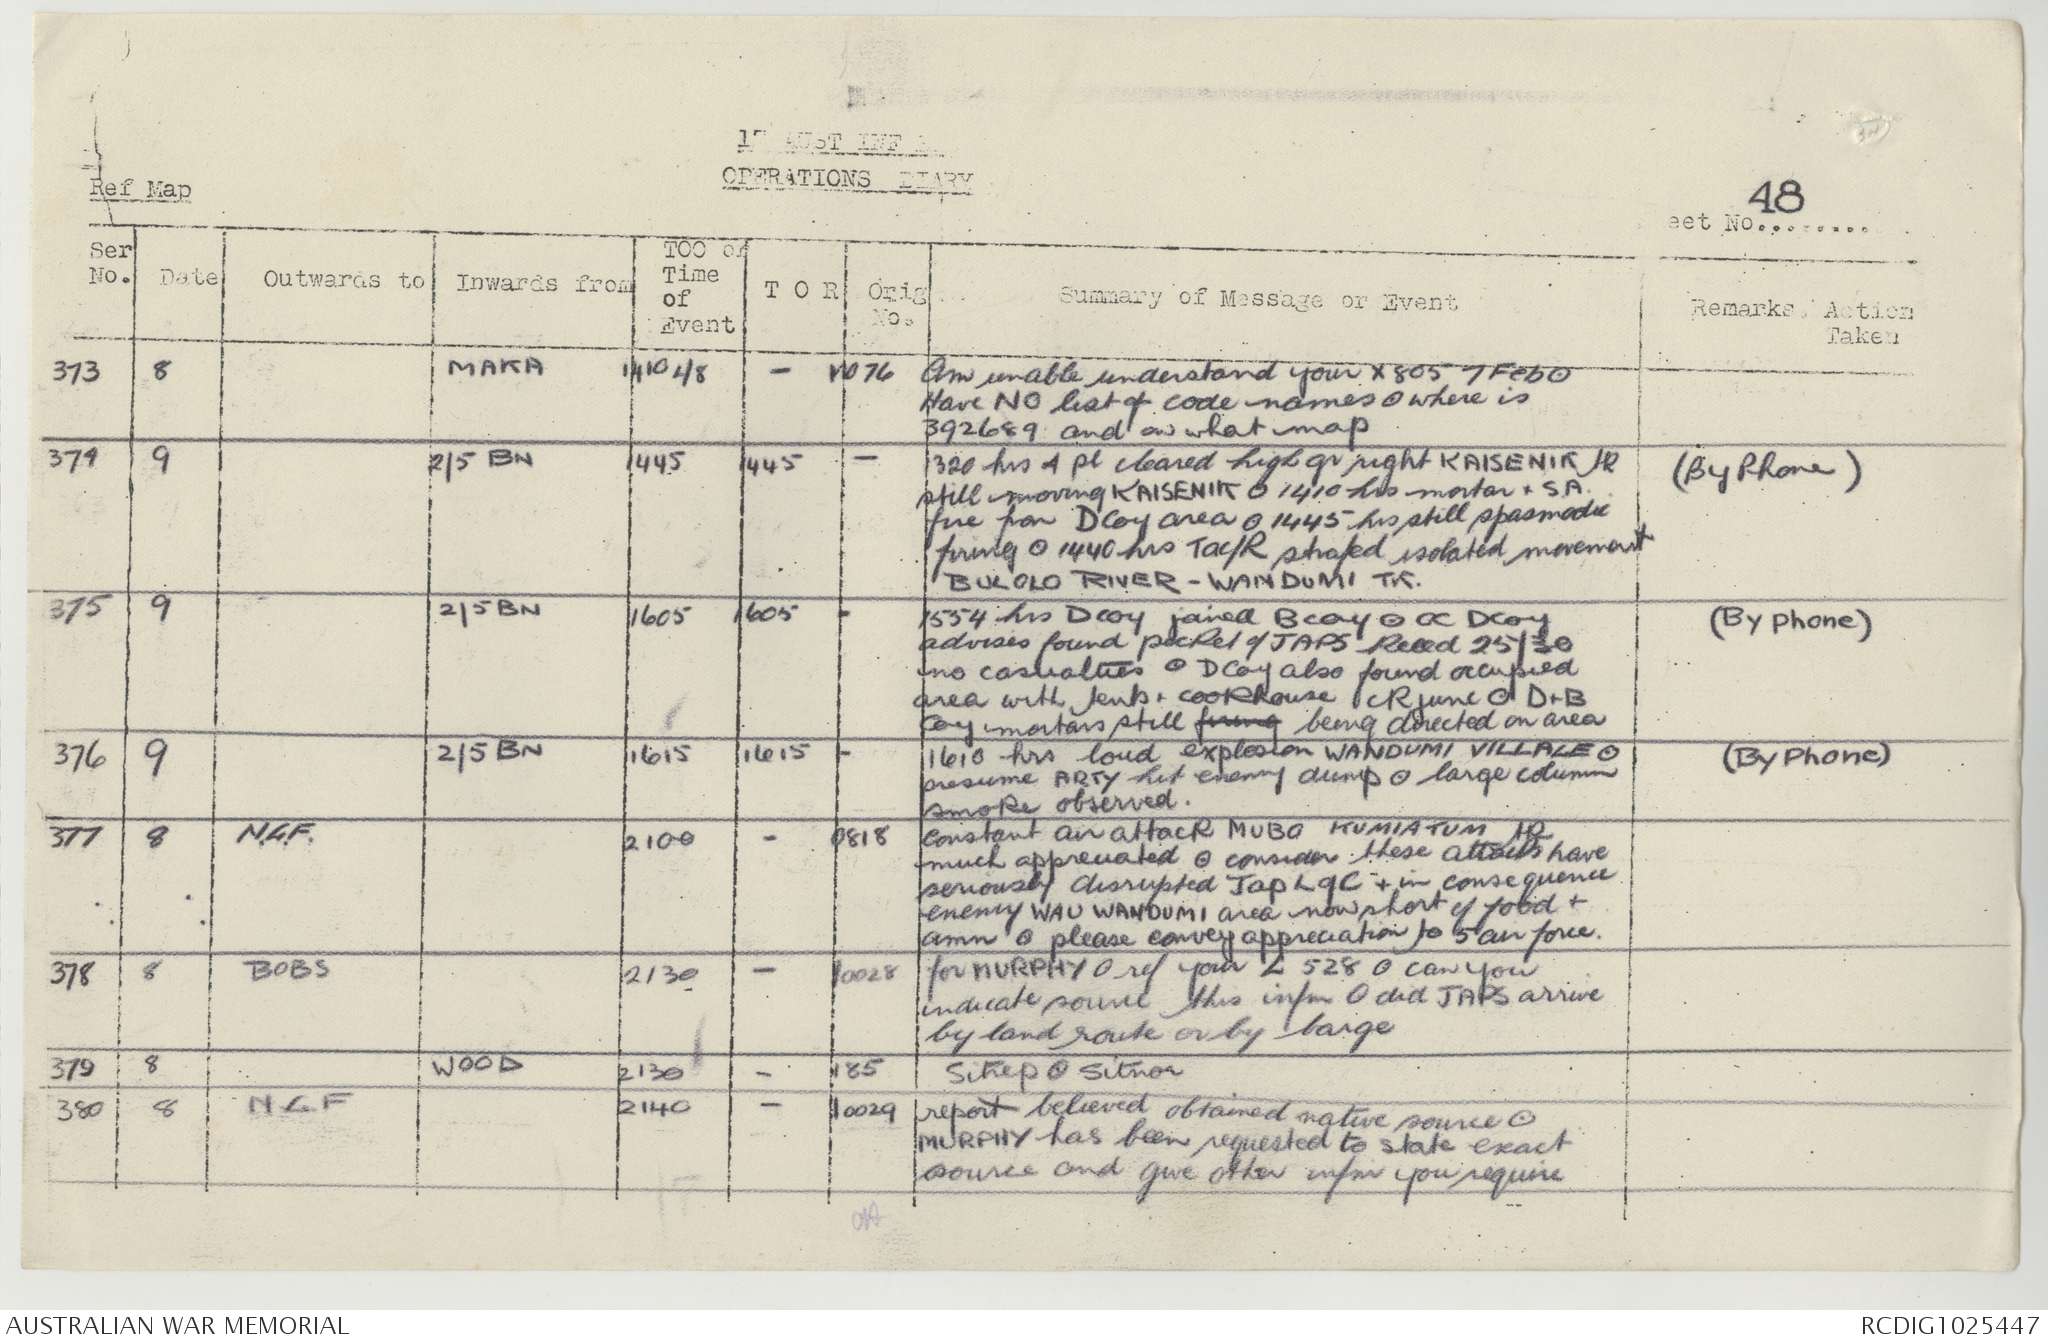 17 AUST INF
OPERATIONS DIARY
Ref Map
48
eet No.........
Ser No. Date Outwards to Inwards from TOO or Time of Event T O R Orig No. Summary of Message or Event Remarks. Action Taken
373 8 MAKA 1410 4/8 - 1076 Am unable understand your X805 7 Feb ⊙
Have NO list of code names ⊙ where is
392689 and on what map
374 9 2/5 BN 1445 1445 - 1320 hrs A Pl cleared high gr right KAISENIK (By Phone)
still moving KAISENIK ⊙ 1410 hrs mortar + S.A.
fire from D Coy area ⊙ 1445 hrs still spasmodic
firing ⊙ 1440 hrs Tac/R strafed isolated movement
BULOLO RIVER - WANDUMI TK.
375 9 2/5 BN 1605 1605 - 1554 hrs D coy joined B coy ⊙ OC D coy (By phone)
advises found pocket of JAPS killed 25/30
no casualties ⊙ D Coy also found occupied
area with tents + cookhouse junc ⊙ D + B
Coy mortars still firing being directed on area
376 9 2/5 BN 1615 1615 - 1610 hrs loud explosion WANDUMI VILLAGE ⊙ (By Phone)
presume ARTY hit enemy dump ⊙ large column
smoke observed.
377 8 N.G.F. 2100 - 0818 Constant air attack MUBO KUMIATUM
much appreciated ⊙ consider these attacks have
seriously disrupted Jap L of C + in consequence
enemy WAU WANDUMI area now short of food +
amn ⊙ please convey appreciation to 5 air force.
378 8 BOBS 2130 - 10028 for MURPHY ⊙ ref your L 528 ⊙ can you
indicate source this infm ⊙ did JAPS arrive
by land route or by barge
379 8 WOOD 2130 - 185 Sitrep ⊙ Sitnor
380 8 N G F 2140 - 10029 report believed obtained native source ⊙
MURPHY has been requested to state exact
source and give other infm you require
AUSTRALIAN WAR MEMORIAL
RCDIG1025447